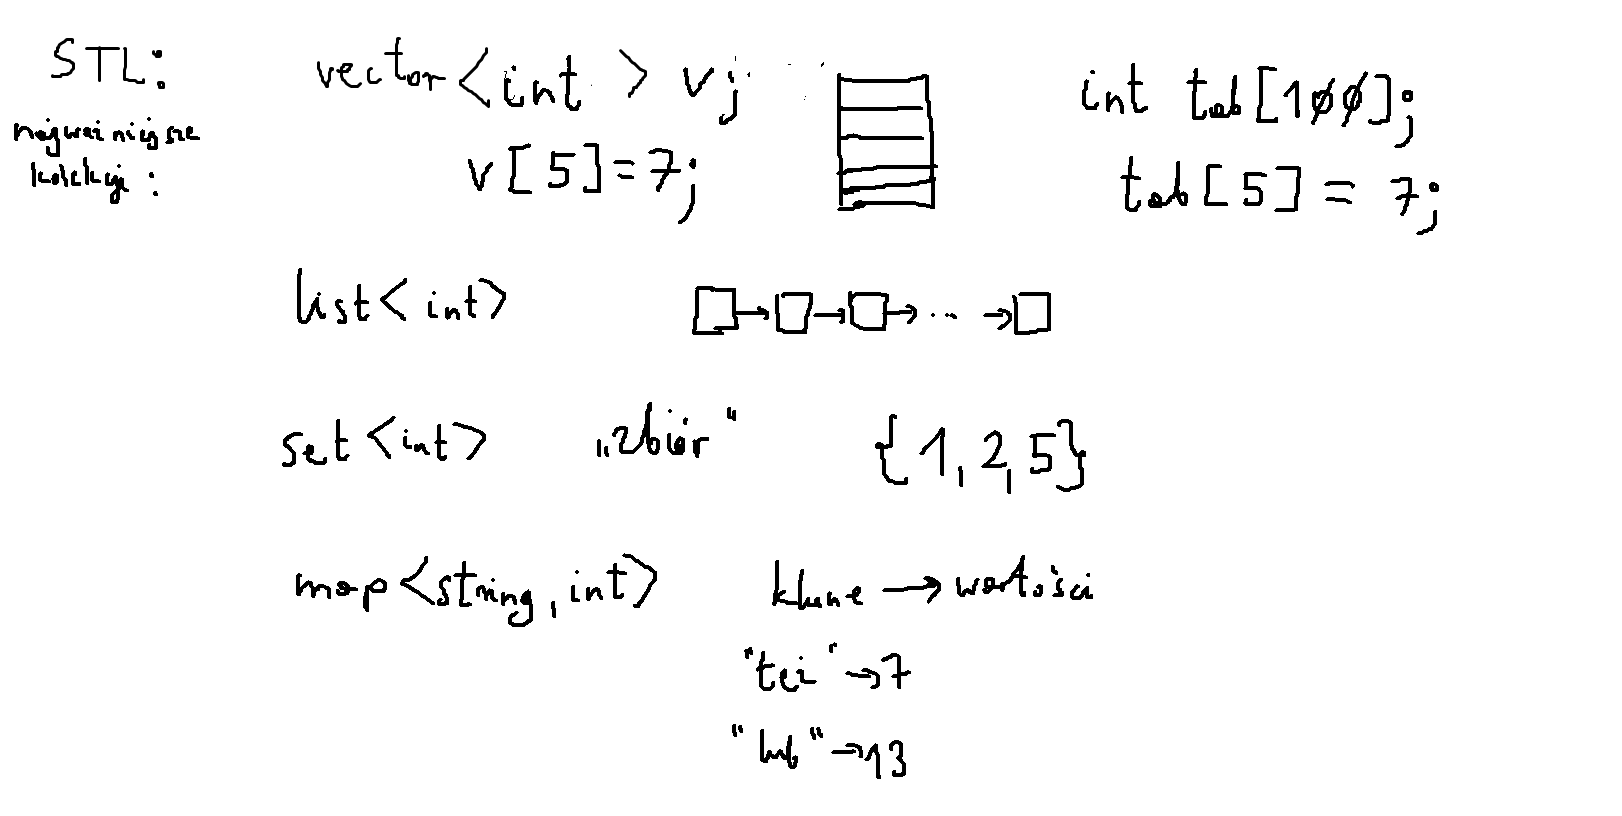 STL:
najważniejsze
kolekcje:
vector<int> v;
v[5]=7;
int tab[100];
tab[5] = 7;
list<int>
...
set<int> „zbiór" {1,2,5}
map<string,int> klucze → wartości
"też" → 7
"lub" → 13